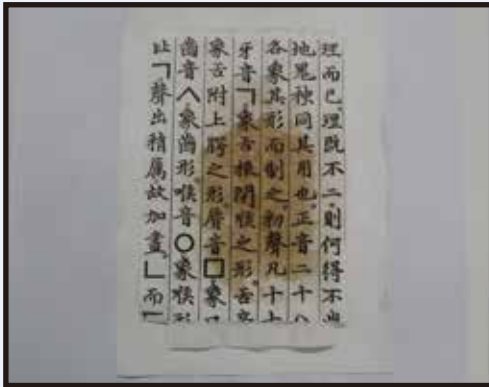 理而已.理既不二.則何得不
地鬼神同其用也.正音二十八
各象其形而制之.初聲凡十七
牙音ㄱ象舌根閉喉之形.舌
象舌附上腭之形.脣音ㅁ象
齒音ㅅ象齒形.喉音ㅇ象喉形
比ㄱ聲出稍厲故加畫.ㄴ而